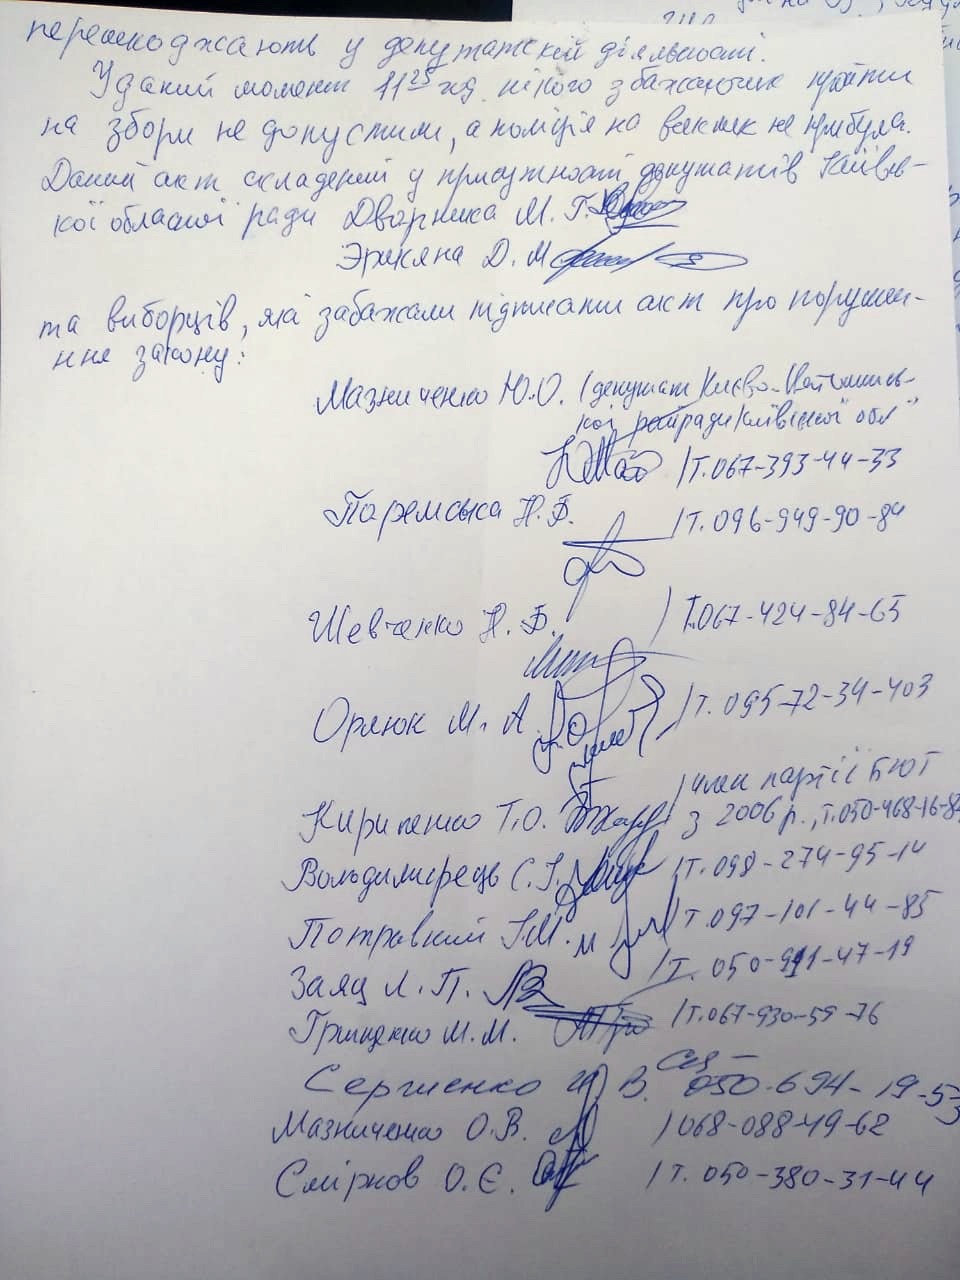 перешкоджають у депутатській діяльності.
У даний момент 11 25 год. нікого з бажаючих пройти
на збори не допустили, а поліція на виклик не прибула.
Даний акт складений у присутності депутатів Київсь-
кої обласної ради Дворника М. Г.
Эрикяна Д. М
та виборців, які забажали підписати акт про порушен-
ння закону:
Мазниченко Ю.О. /депутат Києво-
кої райради Київської обл"
/Т.067-393-44-33
Паремська Н.Б.
/Т. 096-949-90-84
Шевченко Н. Б. /Т.067-424-84-65
Орлюк М. А. /Т. 095-72-34-403
/член партії БЮТ
Кириченко Т.О. з 2006 р., Т.050-468-16-84
Володимирець С.І. /Т. 098-274-95-14
І.М. /Т. 097-101-44-85
Заяц Л. П. /Т. 050-911-47-19
Гриценко М. М. /Т.067-930-59-76
Сергиенко В. 050-694-19-53
Мазниченко О.В. /068-088-49-62
Смірнов О.Є. /Т. 050-380-31-44